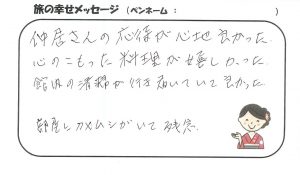 旅の幸せメッセージ（ペンネーム：　　　　　　）
仲居さんの応待が心地良かった
心のこもった料理が嬉しかった
館内の清掃が行き届いていて良かった
部屋にカメムシがいて残念